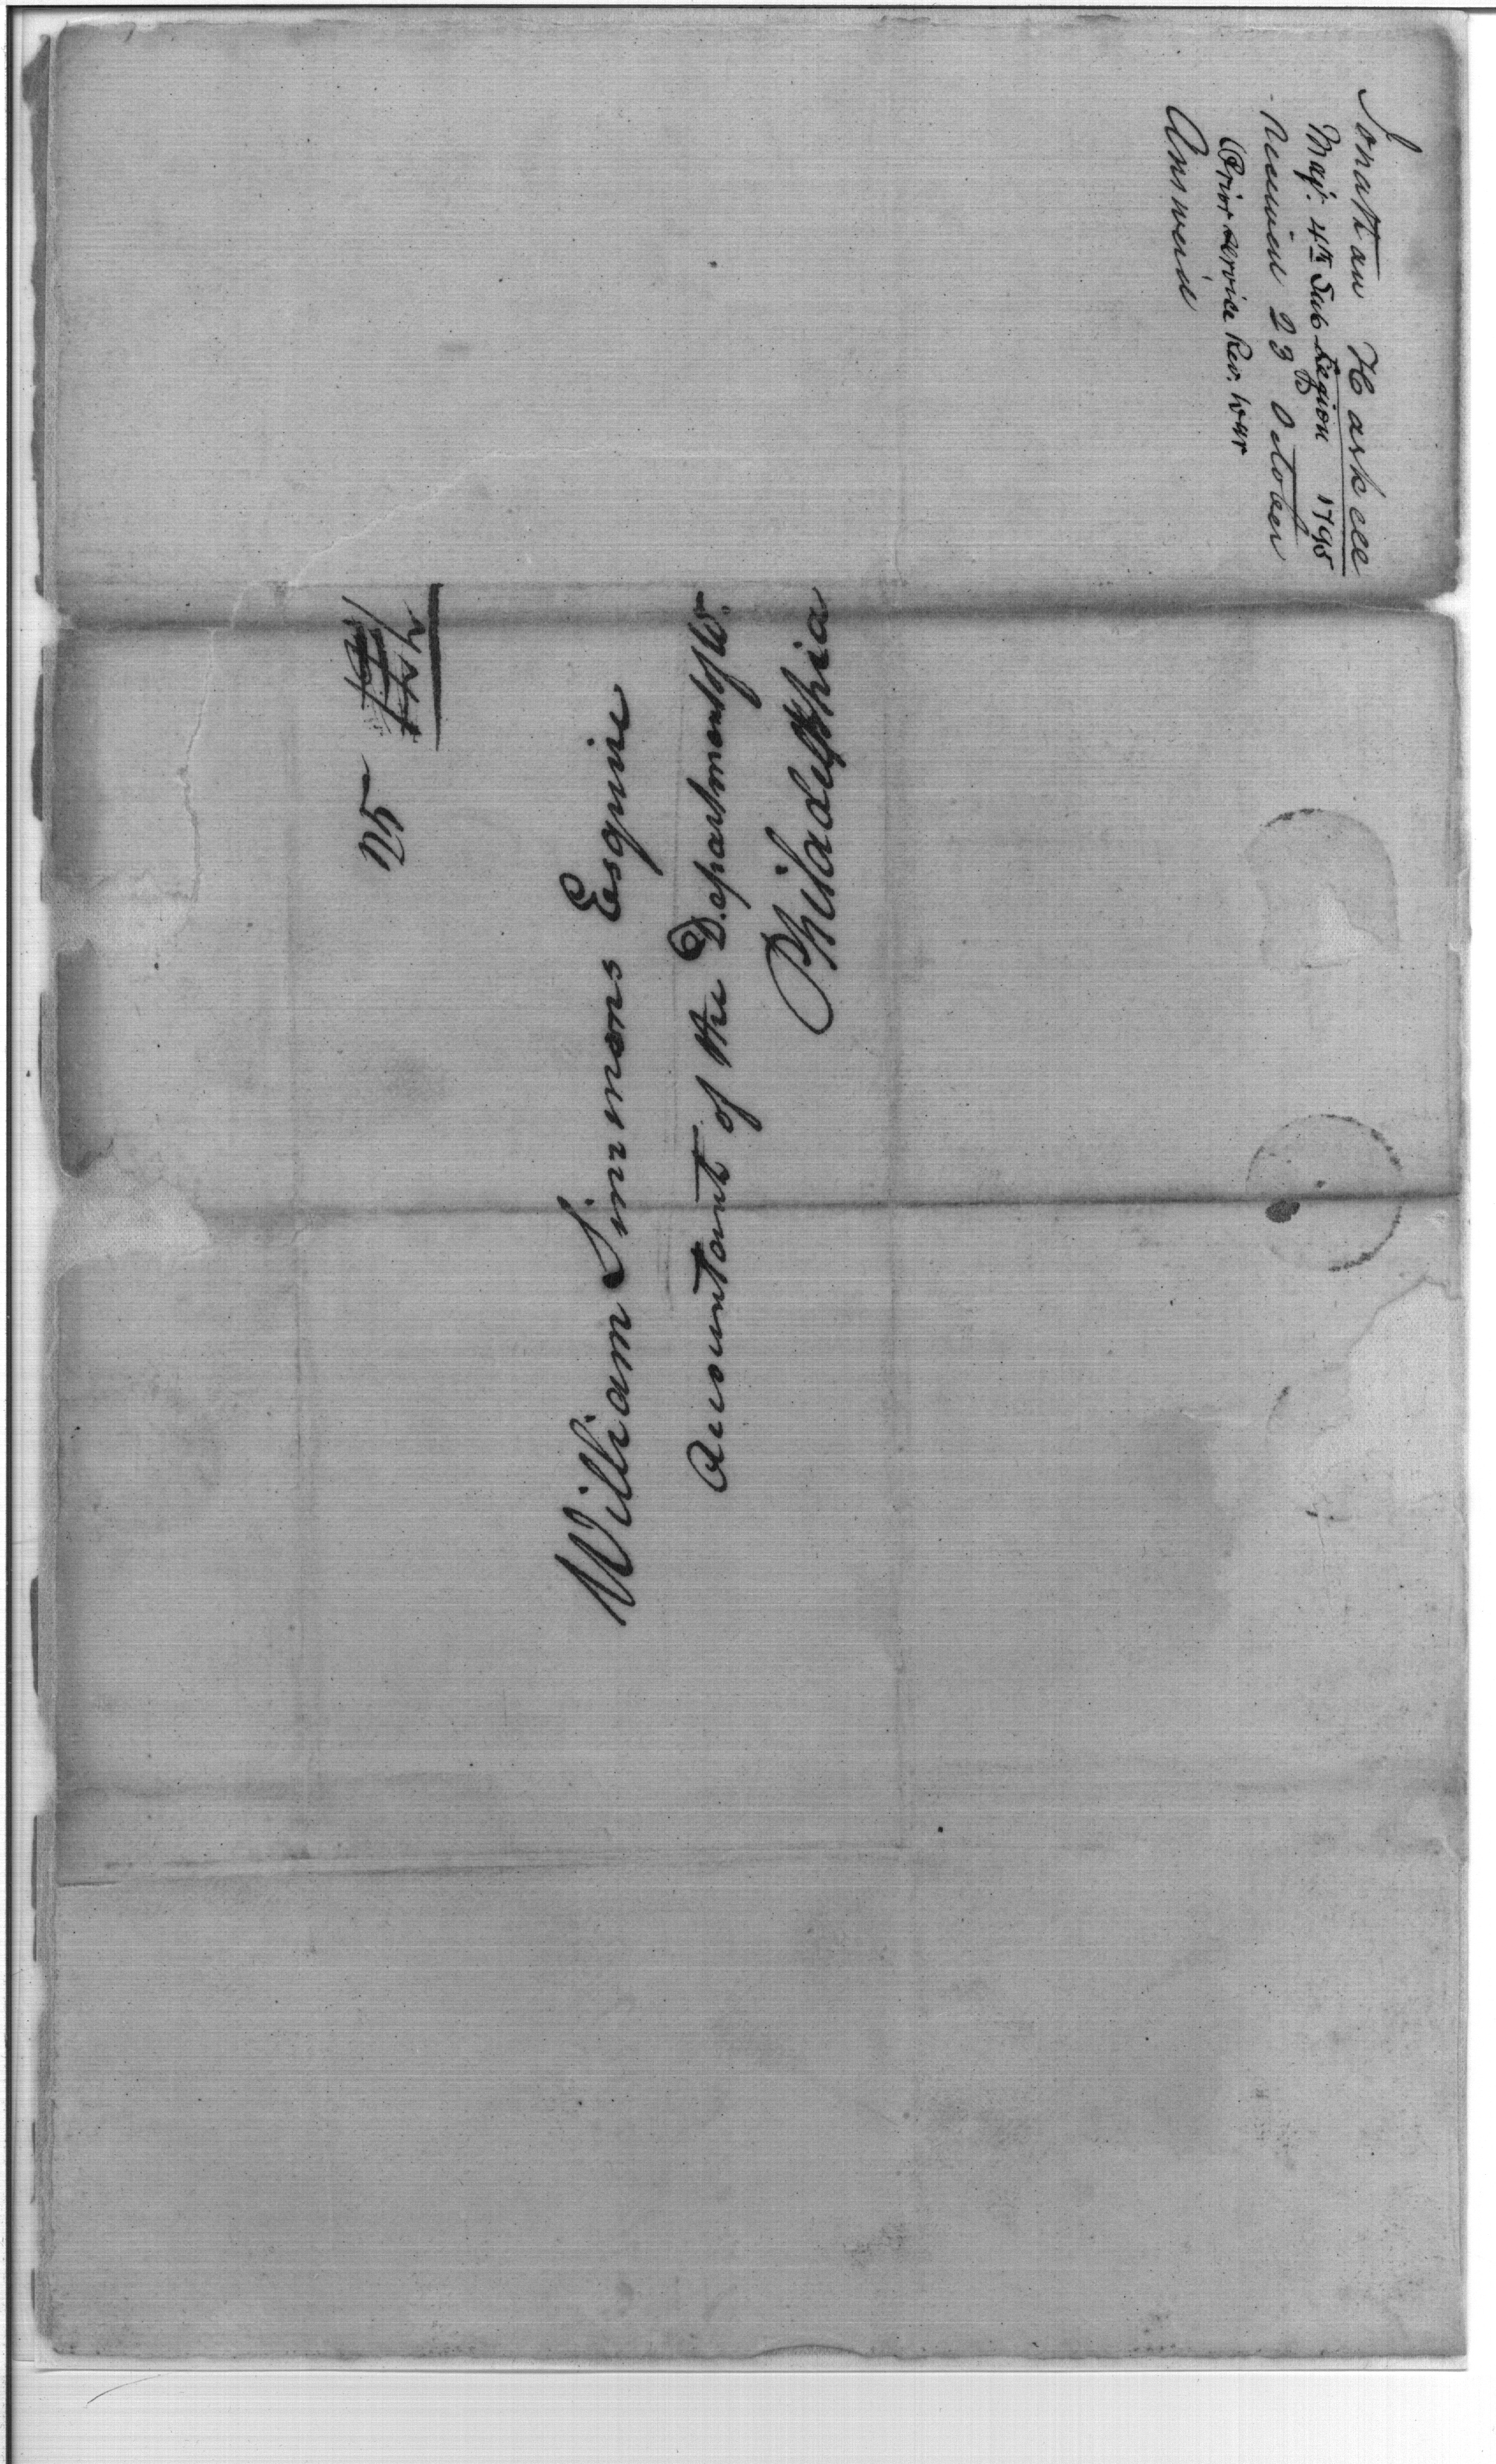 Jonathan Haskell
Maj. 4th Sub Legion 1795
received 23d October
Prior service Rev. War
Answered
25
William Simmons Esquire
Accountant of the Department of W.
Philadelphia